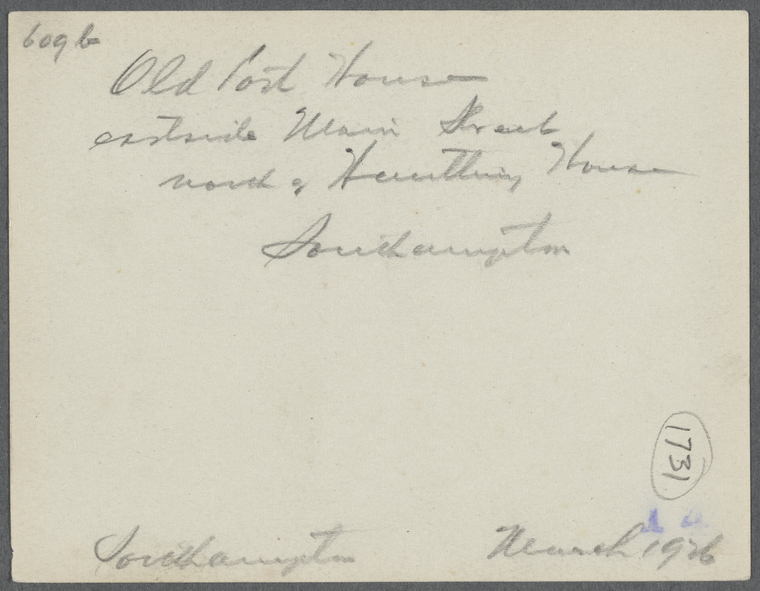 609b
Old Post House
eastside Main Street
north of Huntting House
Southampton
1731
Southampton March 1926